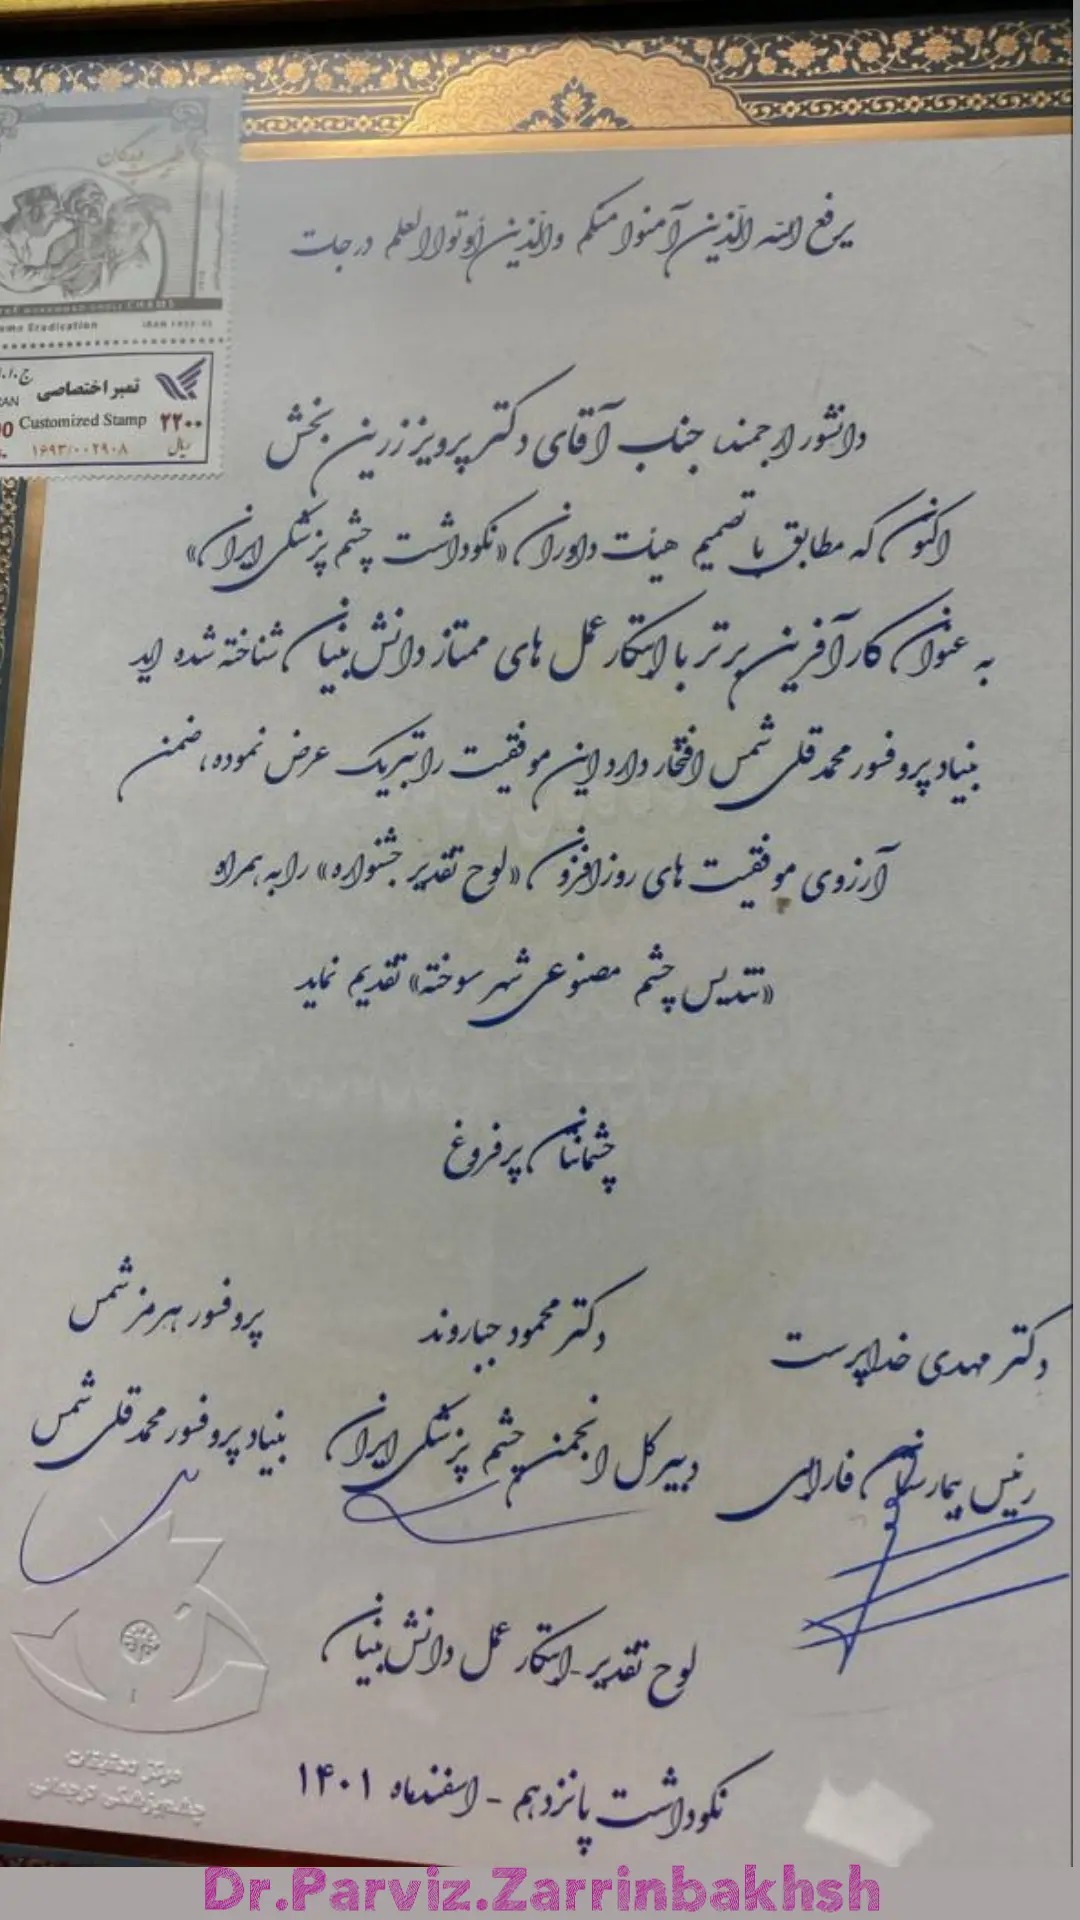 یرفع الله الذین آمنوا منکم والذین اوتوا العلم درجات
دانشور ارجمند، جناب آقای دکتر پرویز زرین بخش
اکنون که مطابق با تصمیم هیئت داوران «نکوداشت چشم پزشکی ایران»
به عنوان کارآفرین برتر با ابتکار عمل های ممتاز دانش بنیان شناخته شده اید
بنیاد پروفسور محمدقلی شمس افتخار دارد این موفقیت را تبریک عرض نموده، ضمن
آرزوی موفقیت های روزافزون «لوح تقدیر جشنواره» را به همراه
«تندیس چشم مصنوعی شهر سوخته» تقدیم نماید
چشمانتان پرفروغ
دکتر مهدی خداپرست
رئیس بیمارستان فارابی
دکتر محمود جباروند
دبیر کل انجمن چشم پزشکی ایران
پروفسور هرمز شمس
بنیاد پروفسور محمدقلی شمس
لوح تقدیر-ابتکار عمل دانش بنیان
نکوداشت پانزدهم - اسفندماه ۱۴۰۱
تمبر اختصاصی
Customized Stamp
۲۲۰۰
ریال
۱۶۹۳/۰۰۲۹۰۸
Eradication
مرکز تحقیقات
چشم‌پزشکی ترجمانی
Dr.Parviz.Zarrinbakhsh